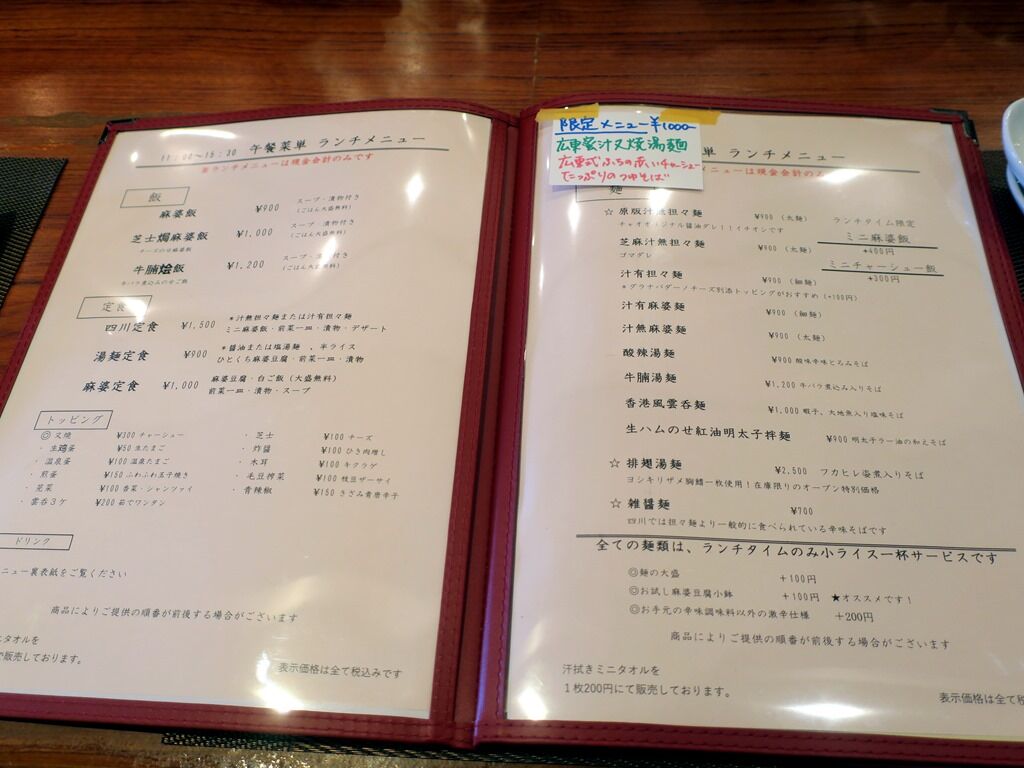 11:00~15:30 午餐菜単 ランチメニュー
※ランチメニューは現金会計のみです
飯
麻婆飯 ¥900 スープ・漬物付き
(ごはん大盛無料)
芝士焗麻婆飯 ¥1,000 スープ・漬物付き
チーズのせ麻婆飯 (ごはん大盛無料)
牛腩烩飯 ¥1,200 スープ・漬物付き
牛バラ煮込みのせご飯 (ごはん大盛無料)
定食
四川定食 ¥1,500 *汁無担々麺または汁有担々麺
ミニ麻婆飯・前菜一皿・漬物・デザート
湯麺定食 ¥900 *醤油または塩湯麺 、半ライス
ひとくち麻婆豆腐・前菜一皿・漬物
麻婆定食 ¥1,000 麻婆豆腐・白ご飯(大盛無料)
前菜一皿・漬物・スープ
トッピング
◎ 叉焼 ¥300 チャーシュー
・生鶏蛋 ¥50 生たまご
・温泉蛋 ¥100 温泉たまご
・煎蛋 ¥150 ふわふわ玉子焼き
・芫菜 ¥100 香菜・シャンツァイ
・雲呑3ケ ¥200 茹でワンタン
・芝士 ¥100 チーズ
・炸醤 ¥100 ひき肉増し
・木耳 ¥100 キクラゲ
・毛豆榨菜 ¥100 枝豆ザーサイ
・青辣椒 ¥150 きざみ青唐辛子
ドリンク
ニュー裏表紙をご覧ください
商品によりご提供の順番が前後する場合がございます
ニタオルを
で販売しております。
表示価格は全て税込みです
限定メニュー¥1000-
広東蜜汁叉焼湯麺
広東式ふちの赤いチャーシュー
たっぷりのつゆそば
単 ランチメニュー
メニューは現金会計のみ
麺
☆ 原版汁無担々麺 ¥900 (太麺)
チャオオリジナル醤油ダレ!!イチオシです
芝麻汁無担々麺 ¥900 (太麺)
ゴマダレ
汁有担々麺 ¥900 (細麺)
*グラナパダーノチーズ別添トッピングがおすすめ(+100円)
汁有麻婆麺 ¥900 (細麺)
汁無麻婆麺 ¥900 (太麺)
酸辣湯麺 ¥900 酸味辛味とろみそば
牛腩湯麺 ¥1,200 牛バラ煮込み入りそば
香港風雲呑麺 ¥1,000 蝦子、大地魚入り塩味そば
生ハムのせ紅油明太子拌麺 ¥900 明太子ラー油の和えそば
☆ 排翅湯麺 ¥2,500 フカヒレ姿煮入りそば
ヨシキリザメ胸鰭一枚使用!在庫限りのオープン特別価格
☆ 雑醤麺 ¥700
四川では担々麺より一般的に食べられている辛味そばです
ランチタイム限定
ミニ麻婆飯
+400円
ミニチャーシュー飯
+300円
全ての麺類は、ランチタイムのみ小ライス一杯サービスです
◎麺の大盛 +100円
◎お試し麻婆豆腐小鉢 +100円 ★オススメです!
◎お手元の辛味調味料以外の激辛仕様 +200円
商品によりご提供の順番が前後する場合がございます
汗拭きミニタオルを
1枚200円にて販売しております。
表示価格は全て税